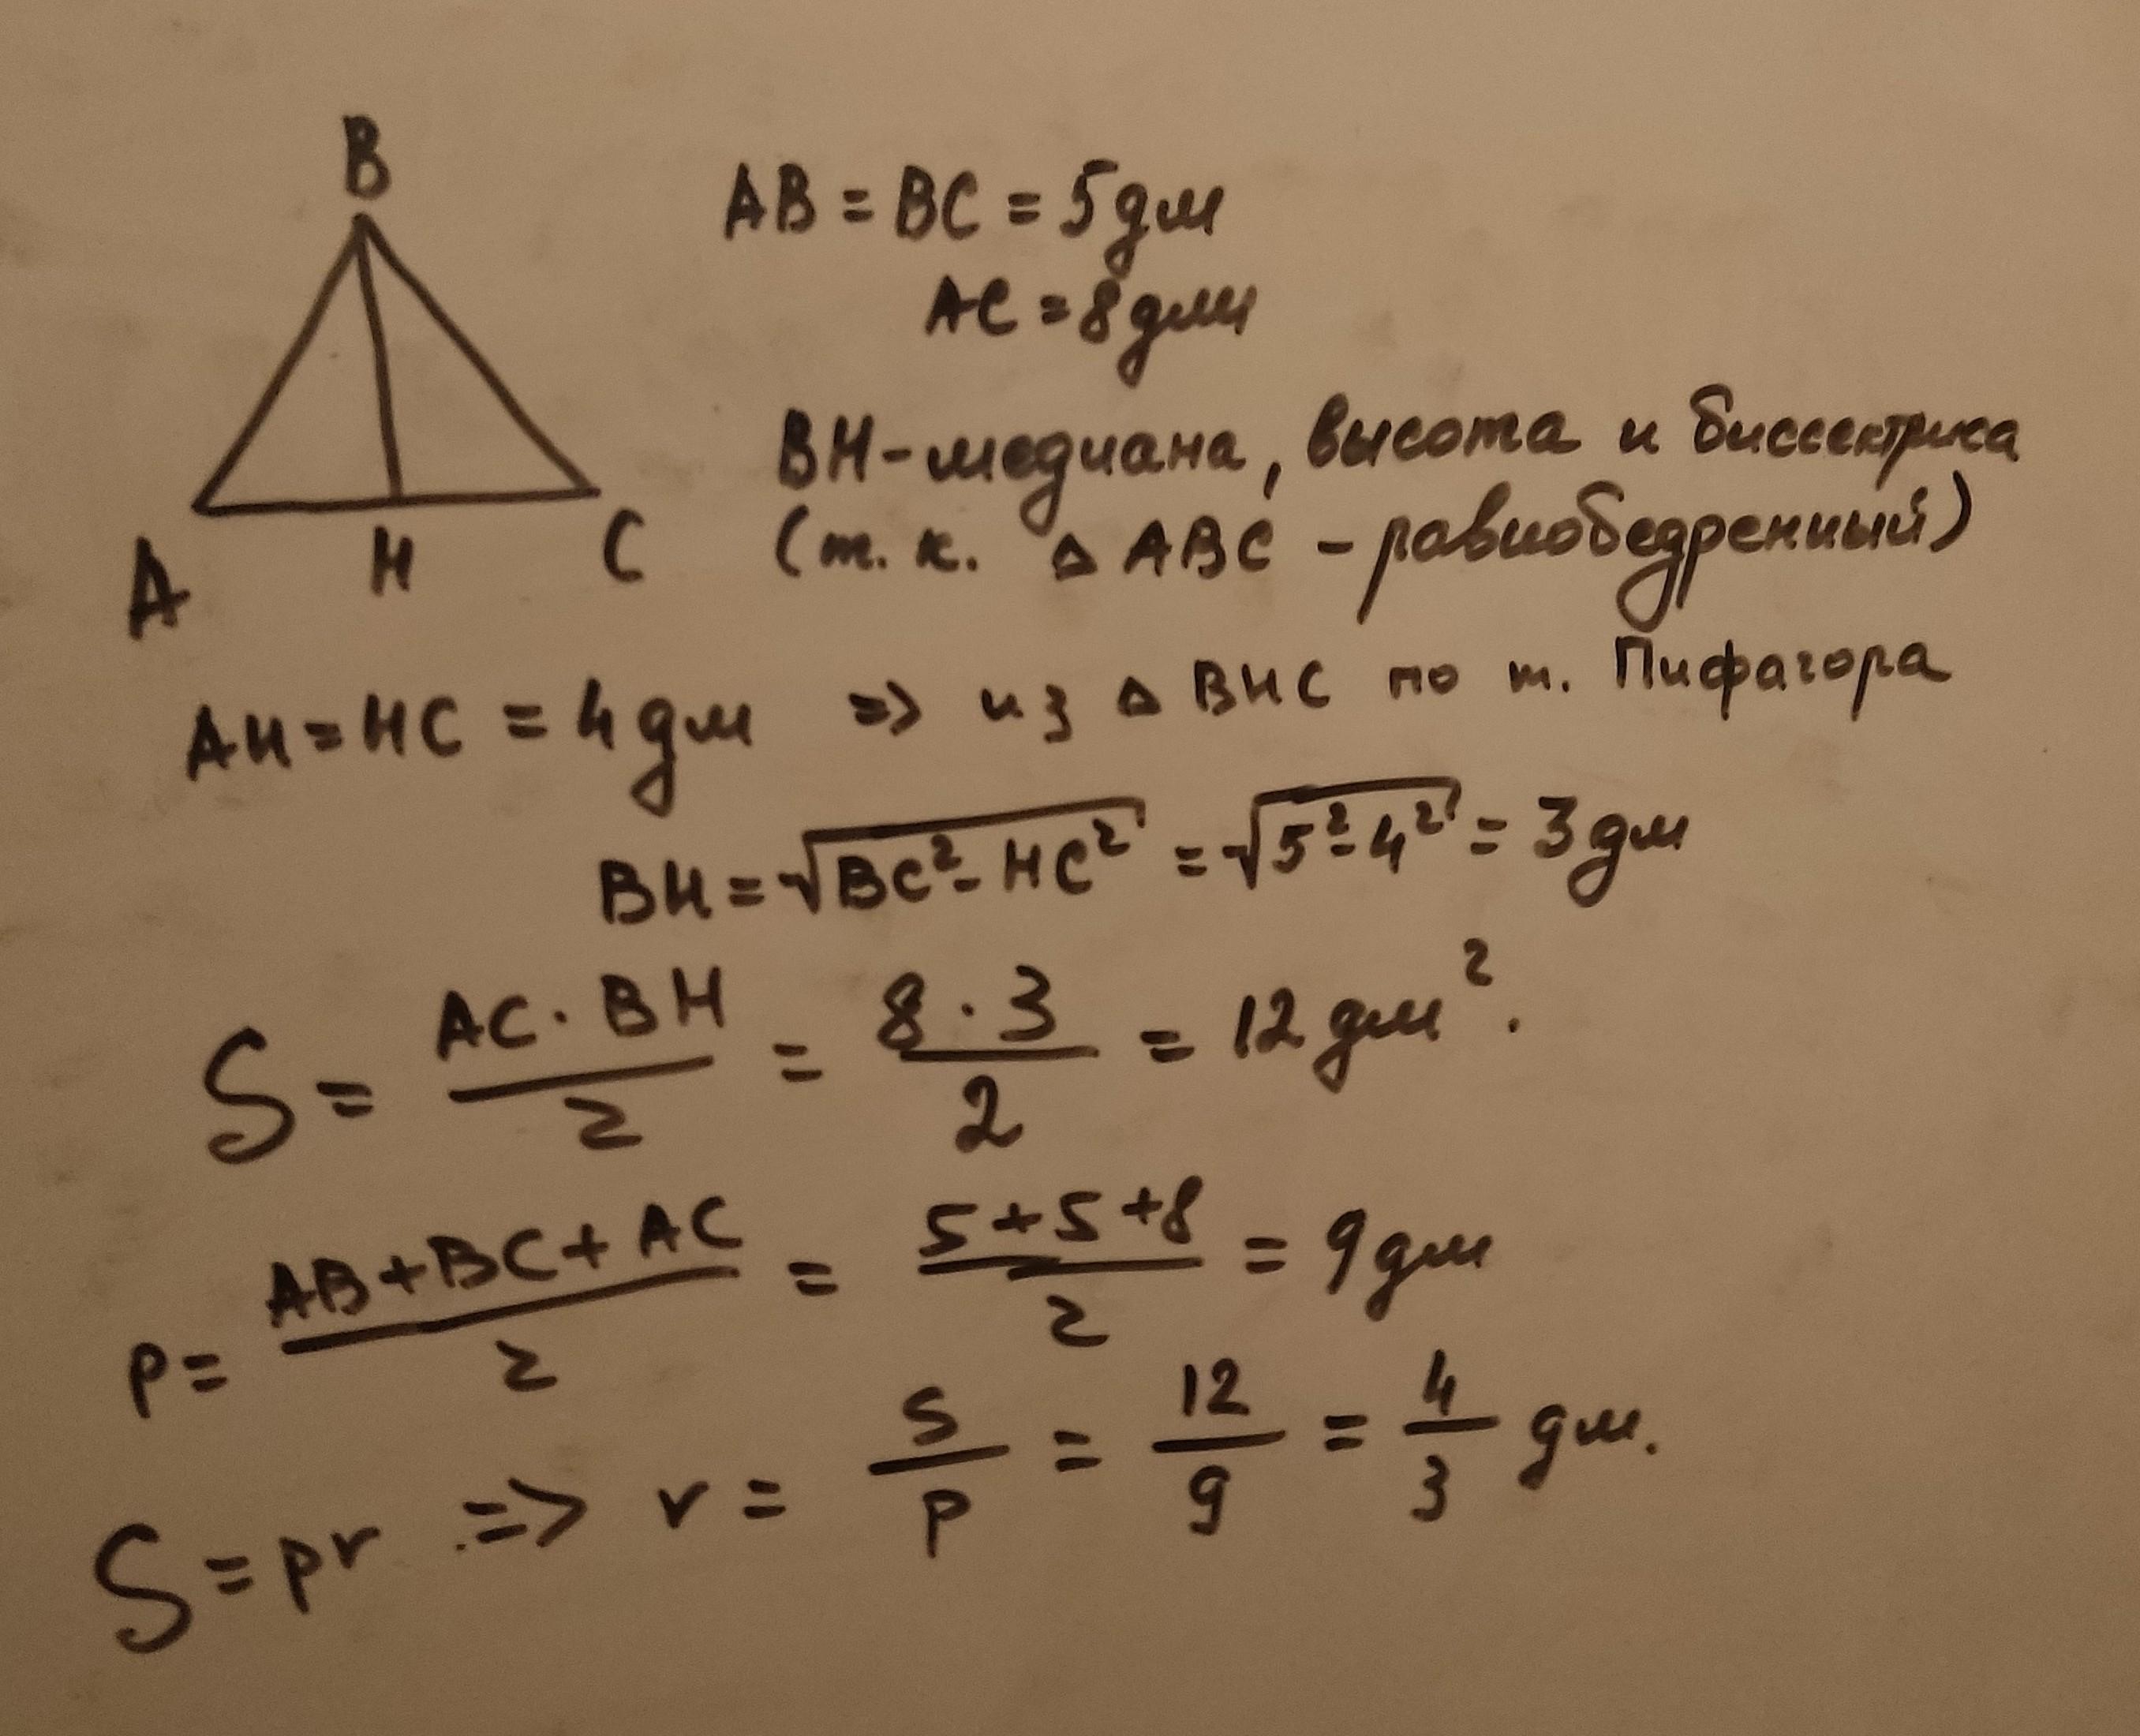 B
A H C
AB = BC = 5дм
AC = 8дм
BH - медиана, высота и биссектриса
(т. к. △ ABC - равнобедренный)
AH = HC = 4 дм => из △ BHC по т. Пифагора
BH = √(BC² - HC²) = √(5² - 4²) = 3 дм
S = (AC · BH)/2 = (8 · 3)/2 = 12 дм².
p = (AB + BC + AC)/2 = (5 + 5 + 8)/2 = 9 дм
S = pr => r = S/p = 12/9 = 4/3 дм.